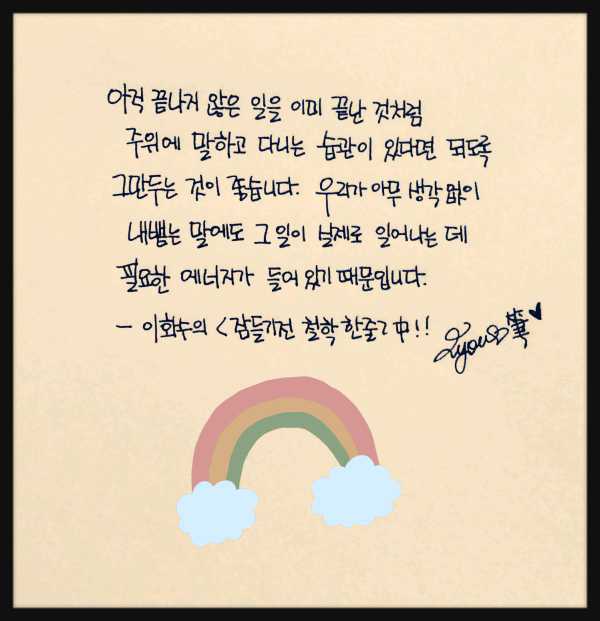 아직 끝나지 않은 일을 이미 끝난 것처럼
주위에 말하고 다니는 습관이 있다면 되도록
그만두는 것이 좋습니다. 우리가 아무 생각 없이
내뱉는 말에도 그 일이 실제로 일어나는 데
필요한 에너지가 들어 있기 때문입니다.
- 이화수의 <잠들기전 철학 한줄> 中!!